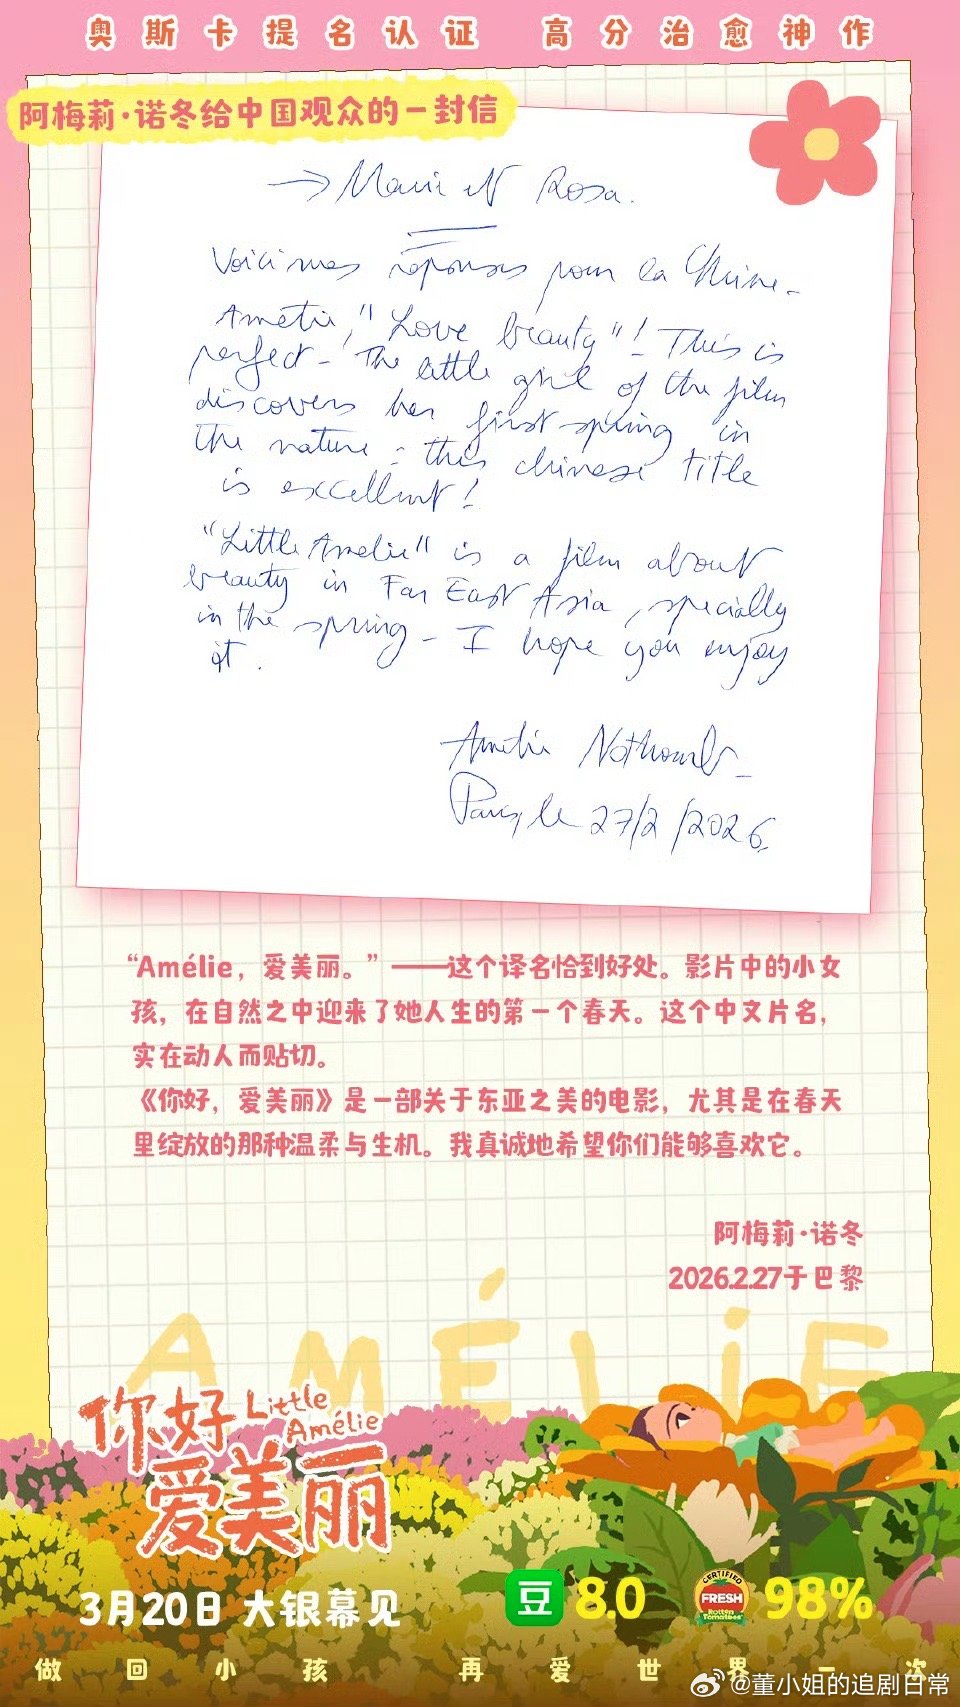 奥斯卡提名认证 高分治愈神作
阿梅莉·诺冬给中国观众的一封信
→ Marie et Rosa.
Voici mes réponses pour la Chine-
Amélie, "Love beauty"! This is
perfect - The little girl of the film
discovers her first spring in
the nature - this chinese title
is excellent!
"Little Amélie" is a film about
beauty in Far East Asia, specially
in the spring - I hope you enjoy
it.
Amélie Nothomb-
Paris, le 27/2/2026.
“Amélie，爱美丽。”——这个译名恰到好处。影片中的小女
孩，在自然之中迎来了她人生的第一个春天。这个中文片名，
实在动人而贴切。
《你好，爱美丽》是一部关于东亚之美的电影，尤其是在春天
里绽放的那种温柔与生机。我真诚地希望你们能够喜欢它。
阿梅莉·诺冬
2026.2.27于巴黎
AMÉLIE
你好 Little
Amélie
爱美丽
3月20日 大银幕见
豆 8.0
CERTIFIED
FRESH
Rotten
Tomatoes
98%
做回小孩 再爱世界一次
@董小姐的追剧日常